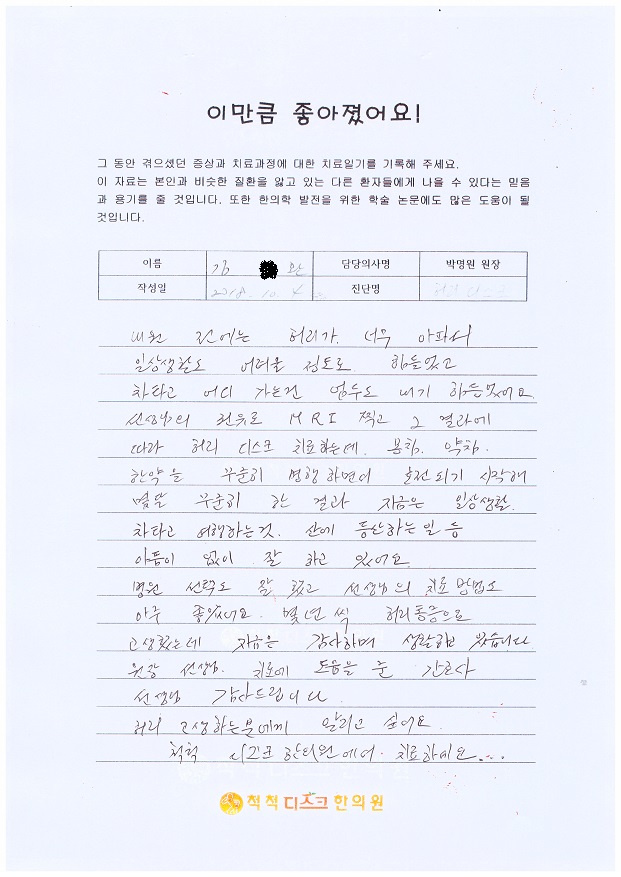 이만큼 좋아졌어요!
그 동안 겪으셨던 증상과 치료과정에 대한 치료일기를 기록해 주세요.
이 자료는 본인과 비슷한 질환을 앓고 있는 다른 환자들에게 나을 수 있다는 믿음
과 용기를 줄 것입니다. 또한 한의학 발전을 위한 학술 논문에도 많은 도움이 될
것입니다.
이름 김 환 담당의사명 박명원 원장
작성일 2018. 10. 4 진단명 허리 디스크
내원 전에는 허리가 너무 아파서
일상생활도 어려울 정도로 힘들었고
차타고 어디 가는건 엄두도 내기 힘들었어요
선생님의 권유로 MRI 찍고 그 결과에
따라 허리 디스크 치료하는데. 봉침. 약침.
한약을 꾸준히 병행하면서 호전되기 시작해
몇달 꾸준히 한 결과 지금은 일상생활.
차타고 여행하는것. 산에 등산하는일 등
아픔이 없이 잘 하고 있어요
병원 선택도 잘 했고 선생님의 치료 방법도
아주 좋았어요. 몇년씩 허리통증으로
고생했는데 지금은 감사하며 생활하고 있습니다
원장 선생님. 치료에 도움을 준 간호사
선생님 감사드립니다
허리 고생하는분에게 알리고 싶어요
척척 디스크 한의원에서 치료하세요...
척척디스크한의원